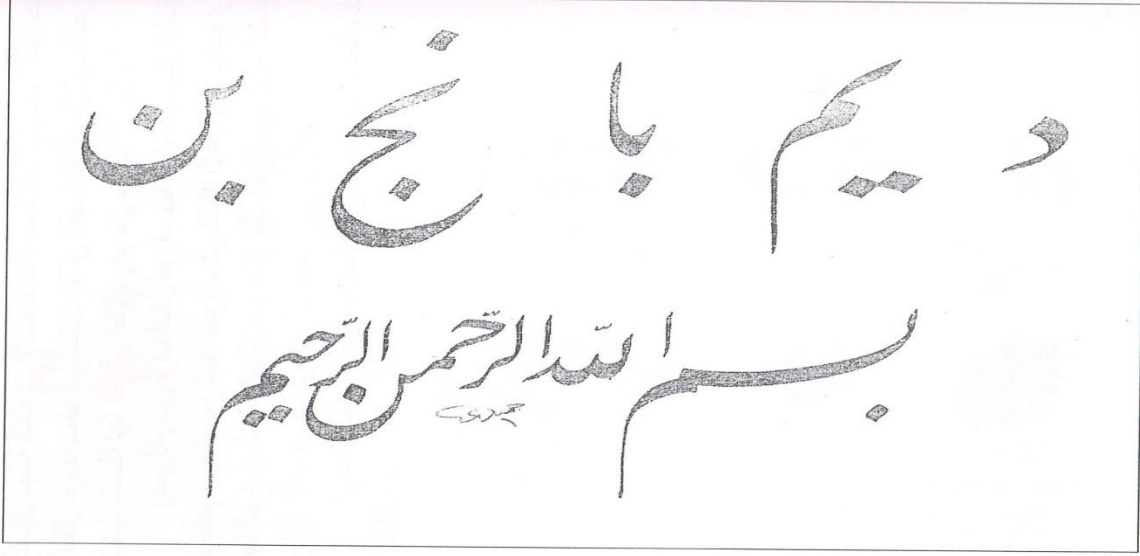 د یم با نج بن
بسم اللّه الرّحمن الرّحیم